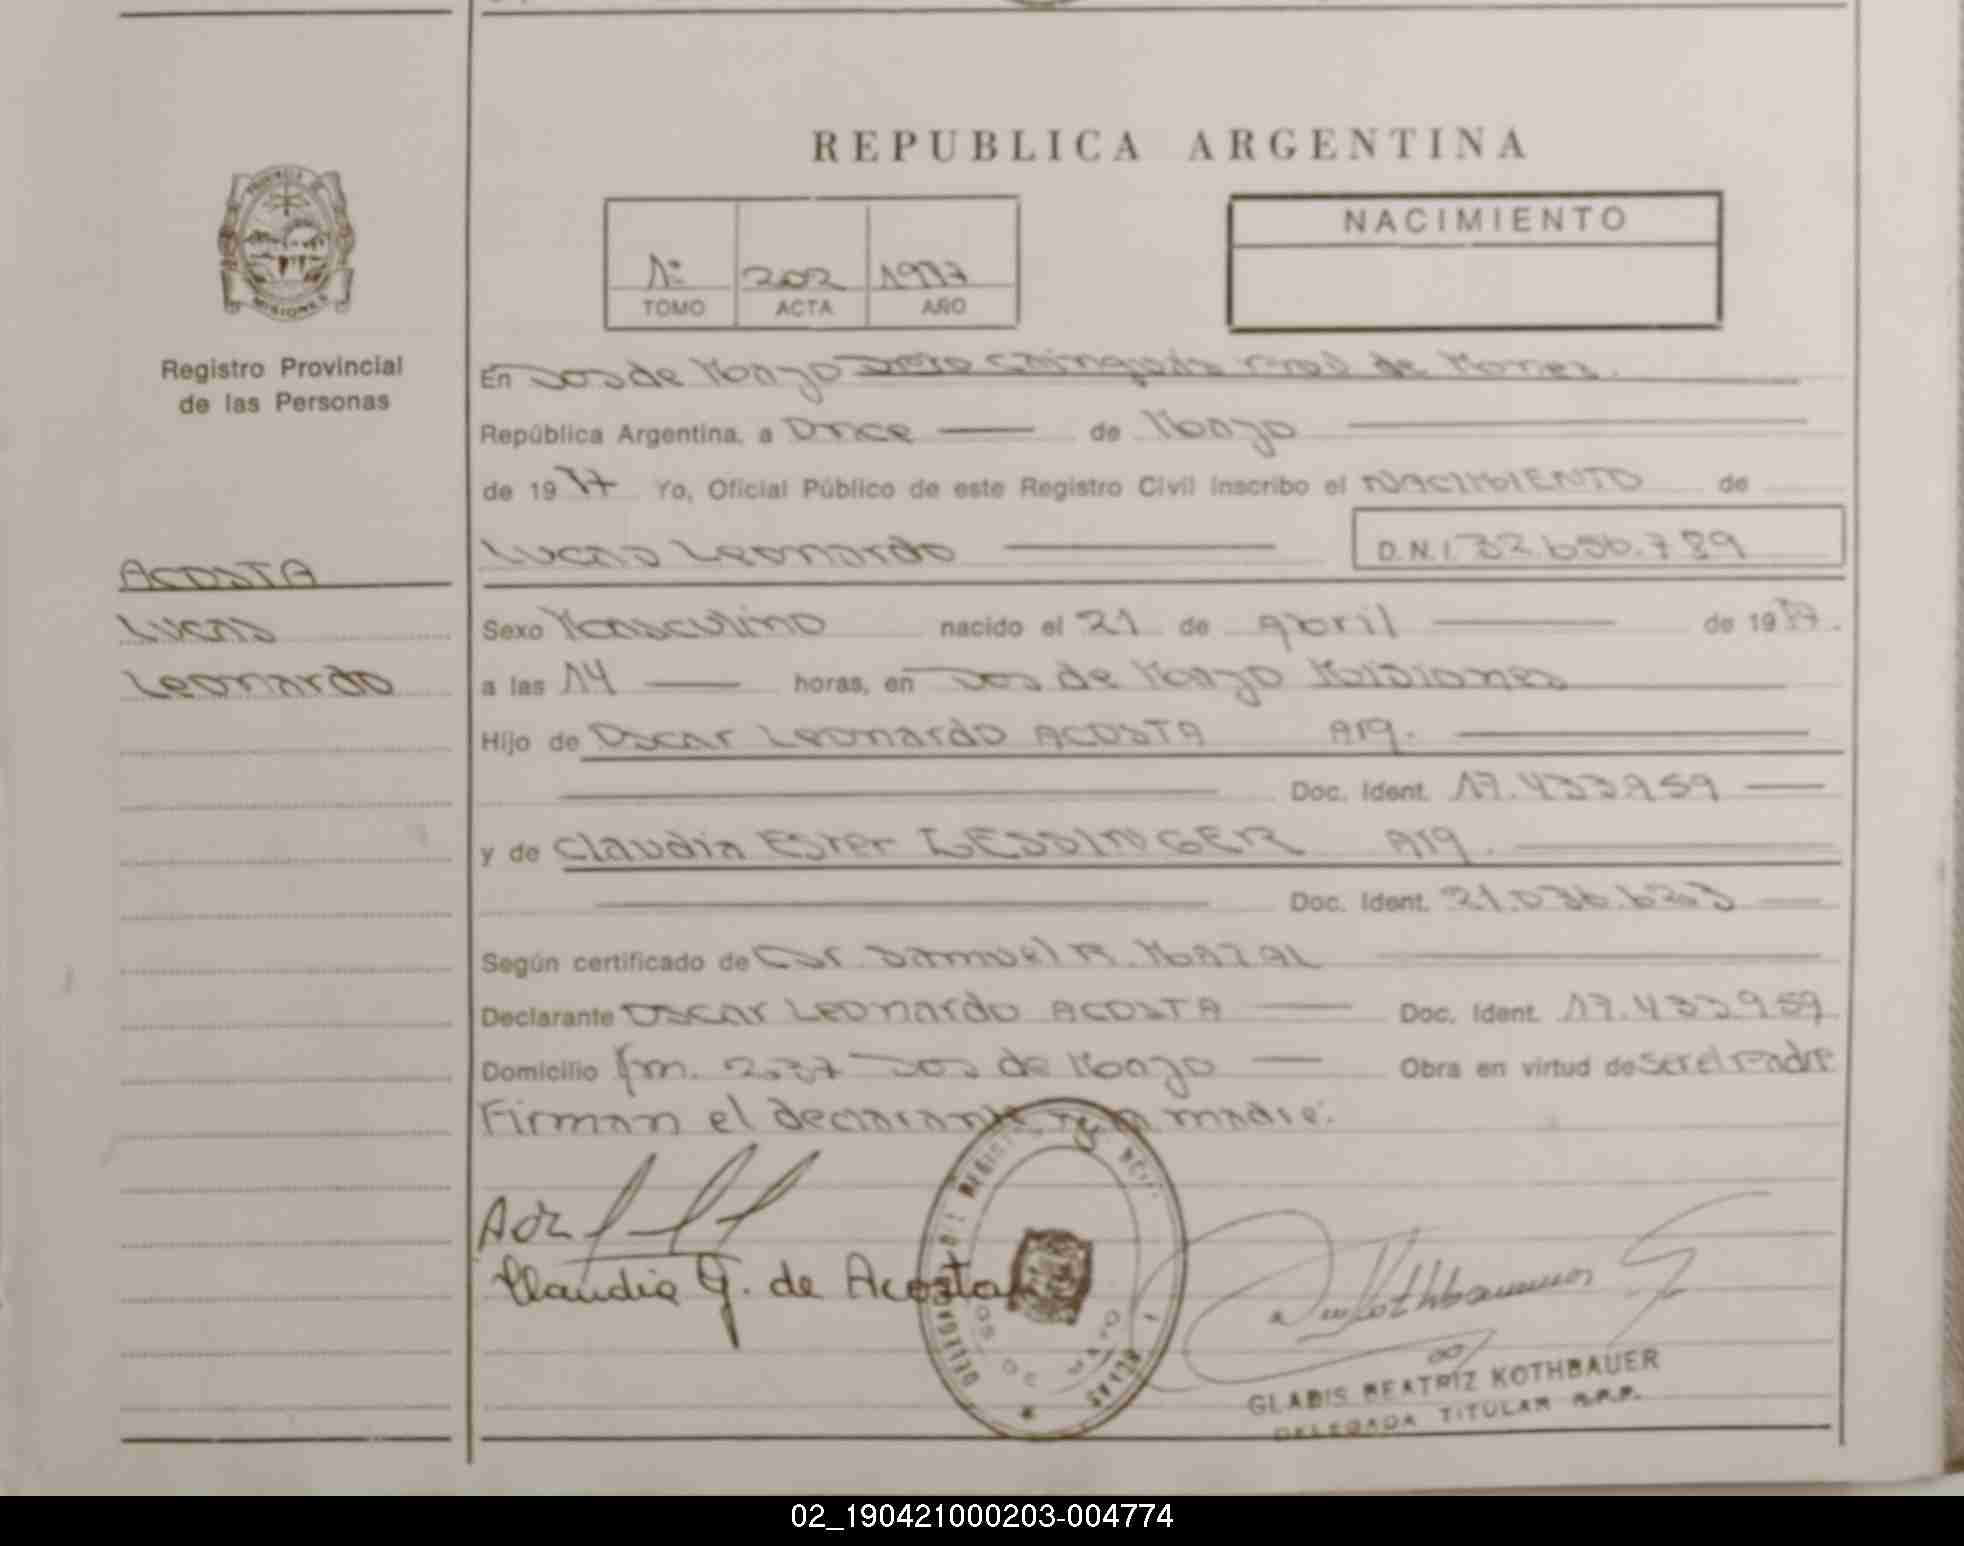 REPUBLICA ARGENTINA
PROVINCIA DE
MISIONES
Registro Provincial
de las Personas
1º 202
TOMO ACTA AÑO
NACIMIENTO
En Dos de Mayo de
República Argentina, a once de Mayo
de 19 Yo, Oficial Público de este Registro Civil inscribo el NACIMIENTO de
Lucas Leonardo D.N.I.
ACOSTA
Lucas
Leonardo
Sexo Masculino nacido el 21 de abril de 19
a las 14 horas, en Dos de Mayo Misiones
Hijo de Oscar Leonardo ACOSTA Arg.
Doc. Ident. 17.433.959
y de Claudia Ester GESSINGER Arg.
Doc. Ident.
Según certificado de Samuel
Declarante Oscar Leonardo ACOSTA Doc. Ident. 17.433.959
Domicilio Dos de Mayo Obra en virtud de ser el Padre
Firman el declarante y la madre.
Claudia G. de Acosta
GLADIS BEATRIZ KOTHBAUER
DELEGADA TITULAR R.P.P.
02_190421000203-004774